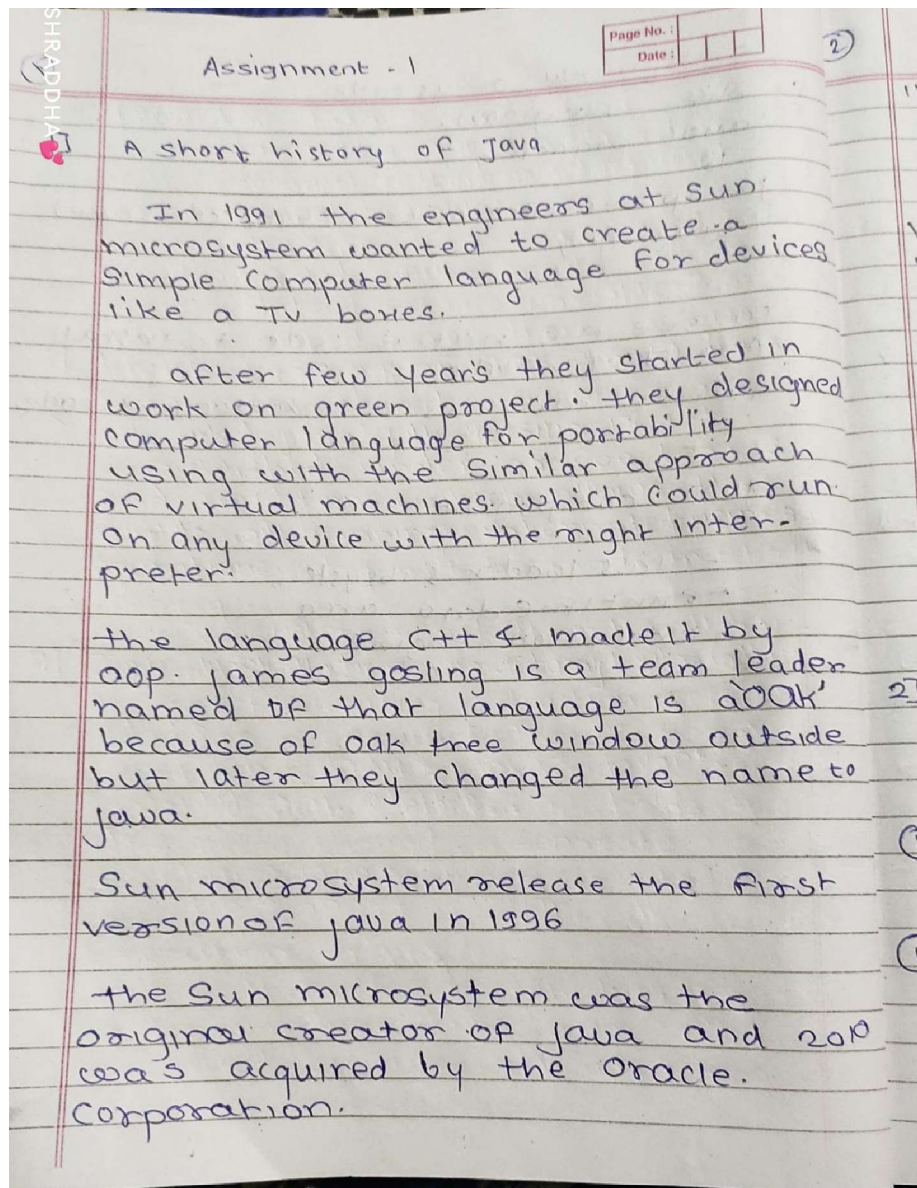 SHRADDHA
Page No. :
Date :
2
Assignment - 1
A short history of Java
In 1991 the engineers at Sun
microsystem wanted to create a
Simple Computer language for devices
like a Tv boxes.
after few year's they started in
work on green project. they designed
computer language for portability
using with the Similar approach
of virtual machines. which could run
on any device with the right inter-
preter.
the language C++ & made it by
oop. james gosling is a team leader
named of that language is
because of oak tree window outside
but later they changed the name to
java.
Sun microsystem release the first
version of java in 1996
the Sun microsystem was the
original creator of java and 2010
was acquired by the oracle.
corporation.
2